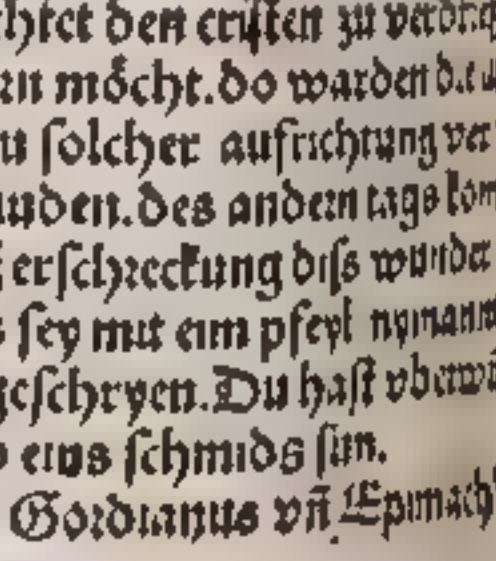 chtet den cristen zu verdrey
ern möcht. do warden d.e
zu solcher aufrichtung ver
unden. des andern tags kom
erschreckung diss wunder
s sey mit eim pfeyl nymann
geschryen. Du hast vberwi
eins schmids sun.
Gordianus vn̄ Epimach